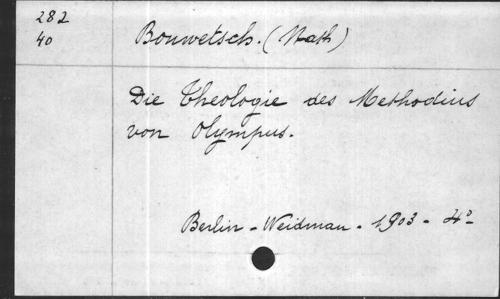 282
40
Bonwetsch. (Nath)
Die Theologie des Methodius
von Olympus.
Berlin - Weidman - 1903 - 4°